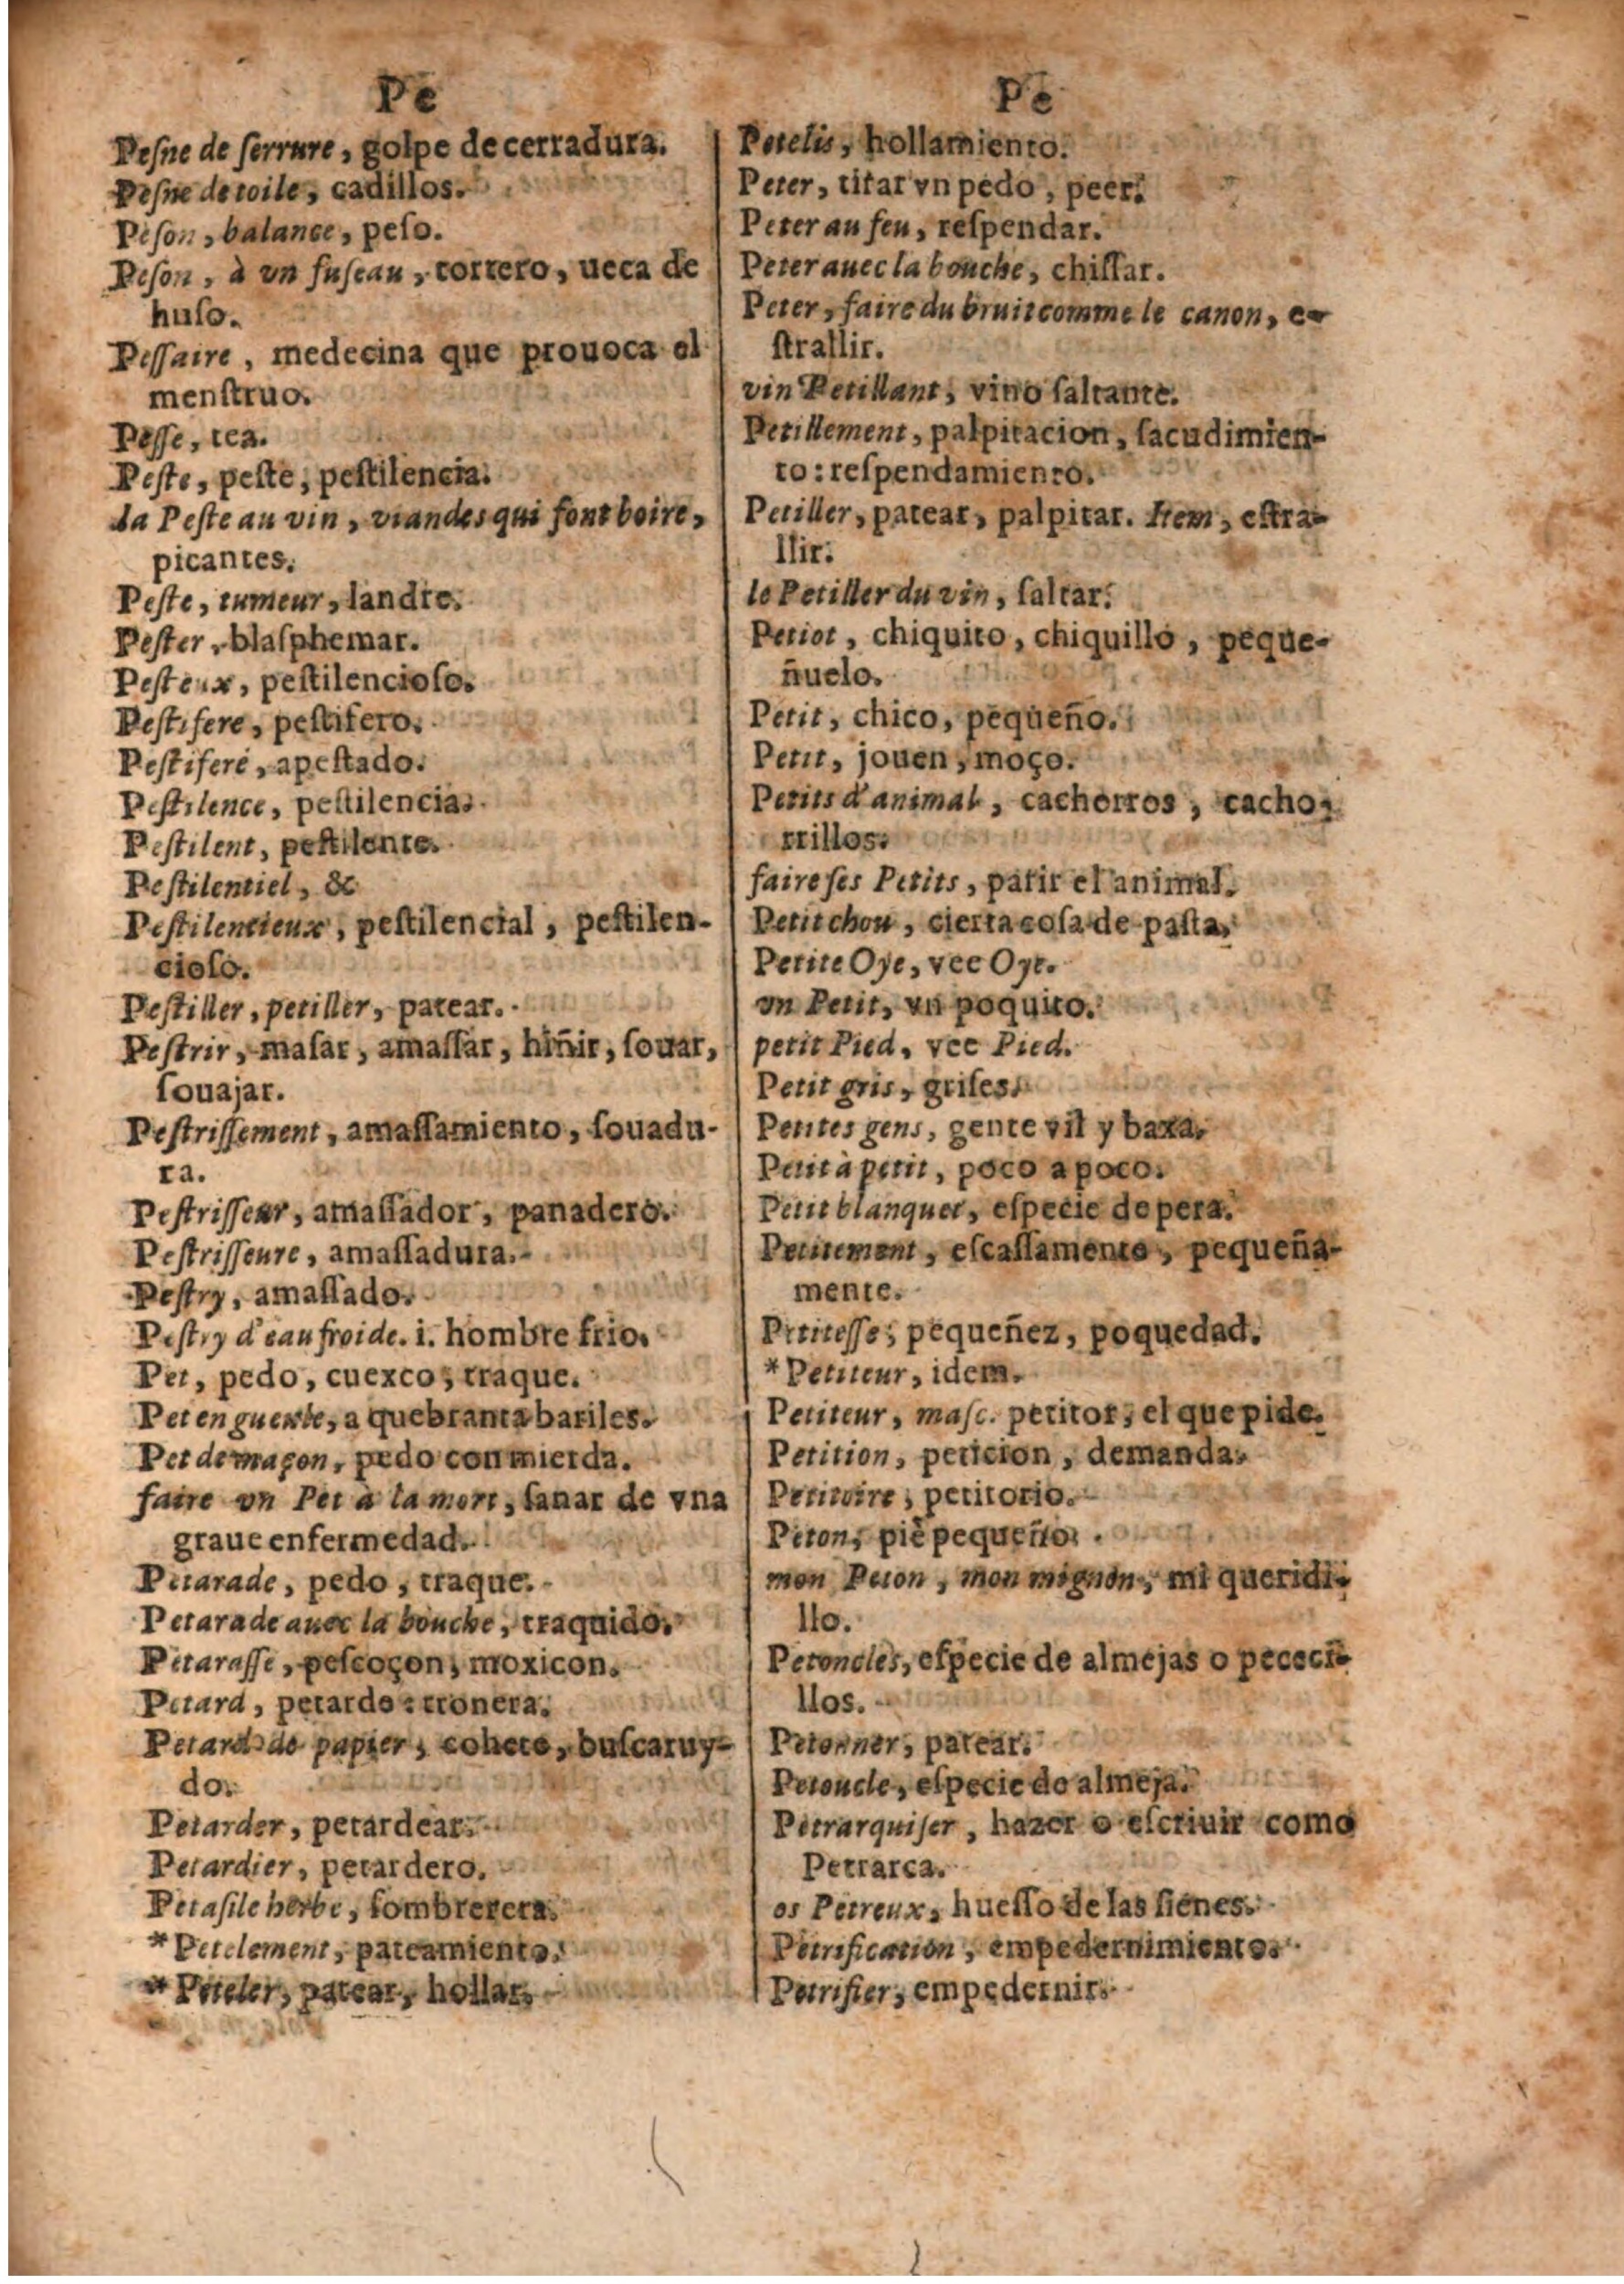 Pe
Pesne de serrure, golpe de cerradura.
Pesne de toile, cadillos.
Peson, balance, peso.
Peson, à vn fuseau, tortero, ueca de
huso.
Pessaire, medecina que prouoca el
menstruo.
Pesse, tea.
Peste, peste, pestilencia.
la Peste au vin, viandes qui font boire,
picantes.
Peste, tumeur, landre.
Pester, blasphemar.
Pesteux, pestilencioso.
Pestifere, pestifero.
Pestiferé, apestado.
Pestilence, pestilencia.
Pestilent, pestilente.
Pestilentiel, &
Pestilentieux, pestilencial, pestilen-
cioso.
Pestiller, petiller, patear.
Pestrir, masar, amassar, hiñir, souar,
souajar.
Pestrissement, amassamiento, souadu-
ra.
Pestrisseur, amassador, panadero.
Pestrisseure, amassadura.
Pestry, amassado.
Pestry d'eau froide. i. hombre frio.
Pet, pedo, cuexco, traque.
Pet en gueule, a quebranta bariles.
Pet de maçon, pedo con mierda.
faire vn Pet à la mort, sanar de vna
graue enfermedad.
Petarade, pedo, traque.
Petarade auec la bouche, traquido.
Petarasse, pescoçon, moxicon.
Petard, petardo: tronera.
Petard de papier, cohete, buscaruy-
do.
Petarder, petardear.
Petardier, petardero.
Petasile herbe, sombrerera.
*Petelement, pateamiento.
*Peteler, patear, hollar.
Pe
Petelis, hollamiento.
Peter, tirar vn pedo, peer.
Peter au feu, respendar.
Peter auec la bouche, chissar.
Peter, faire du bruit comme le canon, e-
strallir.
vin Petillant, vino saltante.
Petillement, palpitacion, sacudimien-
to: respendamiento.
Petiller, patear, palpitar. Item, estra-
llir.
le Petiller du vin, saltar.
Petiot, chiquito, chiquillo, peque-
ñuelo.
Petit, chico, pequeño.
Petit, jouen, moço.
Petits d'animal, cachorros, cacho-
rrillos.
faire ses Petits, parir el animal.
Petit chou, cierta cosa de pasta.
Petite Oye, vee Oye.
vn Petit, vn poquito.
petit Pied, vee Pied.
Petit gris, grises.
Petites gens, gente vil y baxa.
Petit à petit, poco a poco.
Petit blanquet, especie de pera.
Petitement, escassamente, pequeña-
mente.
Petitesse, pequeñez, poquedad.
*Petiteur, idem.
Petiteur, masc. petitor, el que pide.
Petition, peticion, demanda.
Petitoire, petitorio.
Peton, piè pequeño.
mon Peton, mon mignon, mi queridi-
llo.
Petoncles, especie de almejas o pececi-
llos.
Petonner, patear.
Petoucle, especie de almeja.
Petrarquiser, hazer o escriuir como
Petrarca.
os Petreux, huesso de las sienes.
Petrification, empedernimiento.
Petrifier, empedernir.